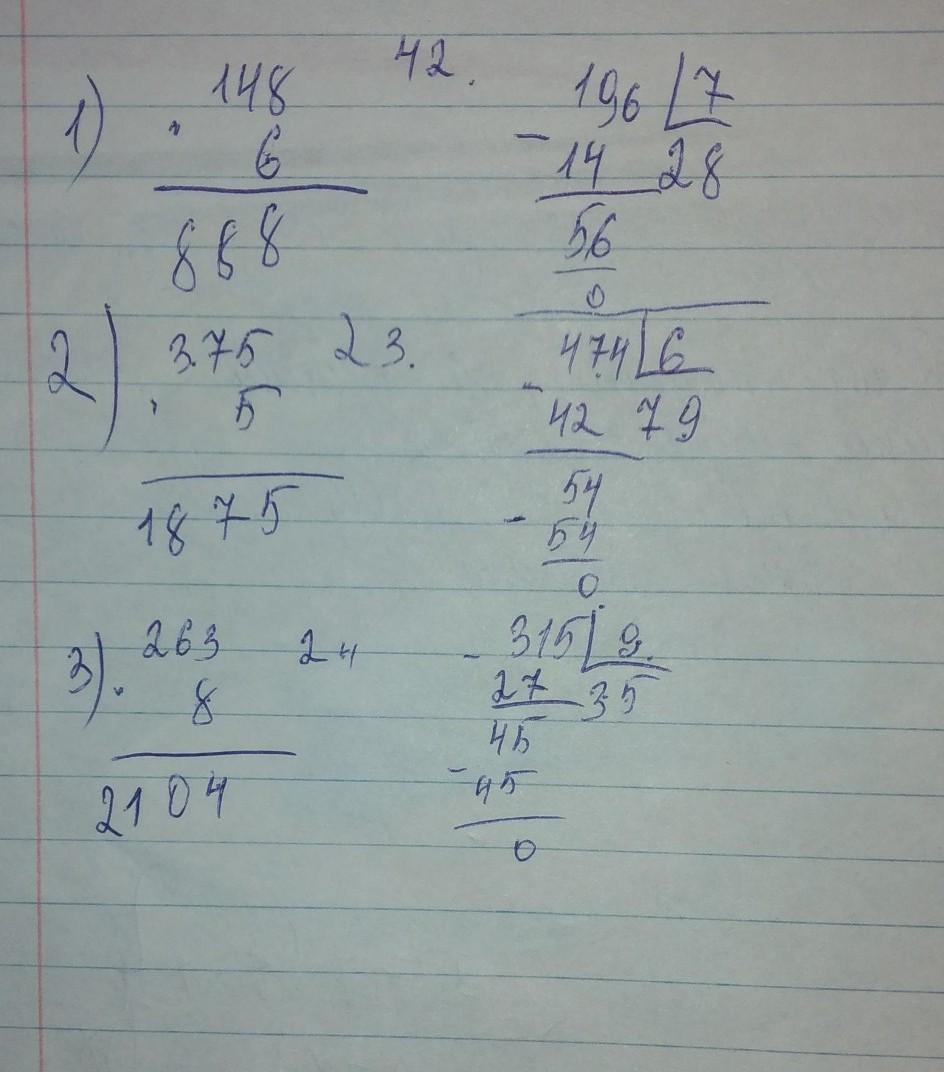 1) 148 42. 196 7
· 6 - 14 28
888 56
0
2) 375 23. 474 6
· 5 - 42 79
1875 54
- 54
0
3) 263 24 - 315 9
· 8 27 35
2104 45
- 45
0